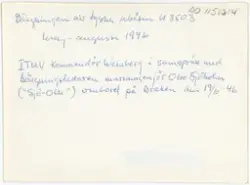 Bärgningen av tyska ubåten U 3503
maj-augusti 1946
ITMV Kommendör Wernberg i samspråk med
bärgningsledaren mariningenjör Olle Sjöholm
("Sjö-Olle") ombord på Draken den 19/8-46